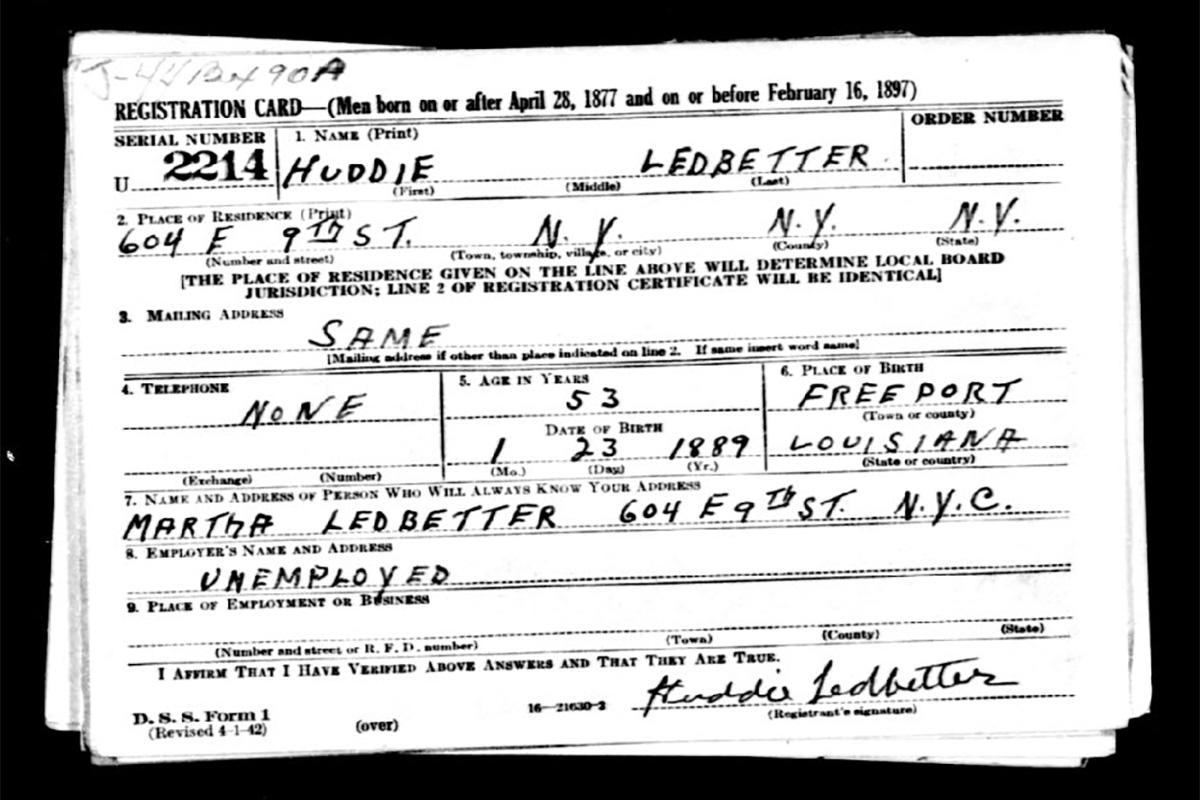 J-44 Bx 90A
REGISTRATION CARD—(Men born on or after April 28, 1877 and on or before February 16, 1897)
SERIAL NUMBER 1. NAME (Print) ORDER NUMBER
U 2214 HUDDIE LEDBETTER
(First) (Middle) (Last)
2. PLACE OF RESIDENCE (Print)
604 E 9TH ST. N.Y. N.Y. N.Y.
(Number and street) (Town, township, village, or city) (County) (State)
[THE PLACE OF RESIDENCE GIVEN ON THE LINE ABOVE WILL DETERMINE LOCAL BOARD
JURISDICTION; LINE 2 OF REGISTRATION CERTIFICATE WILL BE IDENTICAL]
3. MAILING ADDRESS
SAME
[Mailing address if other than place indicated on line 2. If same insert word same]
4. TELEPHONE
NONE
(Exchange) (Number)
5. AGE IN YEARS
53
DATE OF BIRTH
1 23 1889
(Mo.) (Day) (Yr.)
6. PLACE OF BIRTH
FREEPORT
(Town or county)
LOUISIANA
(State or country)
7. NAME AND ADDRESS OF PERSON WHO WILL ALWAYS KNOW YOUR ADDRESS
MARTHA LEDBETTER 604 E 9TH ST. N.Y.C.
8. EMPLOYER'S NAME AND ADDRESS
UNEMPLOYED
9. PLACE OF EMPLOYMENT OR BUSINESS
(Number and street or R. F. D. number) (Town) (County) (State)
I AFFIRM THAT I HAVE VERIFIED ABOVE ANSWERS AND THAT THEY ARE TRUE.
Huddie Ledbetter
D. S. S. Form 1 16—21630-2 (Registrant's signature)
(Revised 4-1-42) (over)